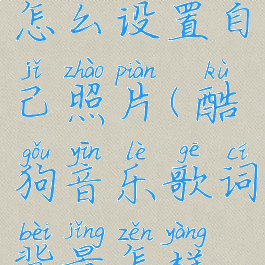 怎么设置自
jǐ zhào piàn kù
己照片(酷
gǒu yīn lè gē cí
狗音乐歌词
bèi jǐng zěn yàng
背景怎样